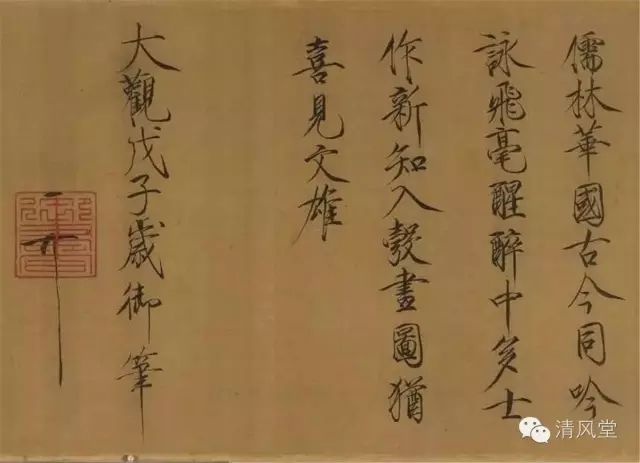 儒林華國古今同吟
詠飛毫醒醉中多士
作新知入彀畫圖猶
喜見文雄
大觀戊子歲御筆
清风堂